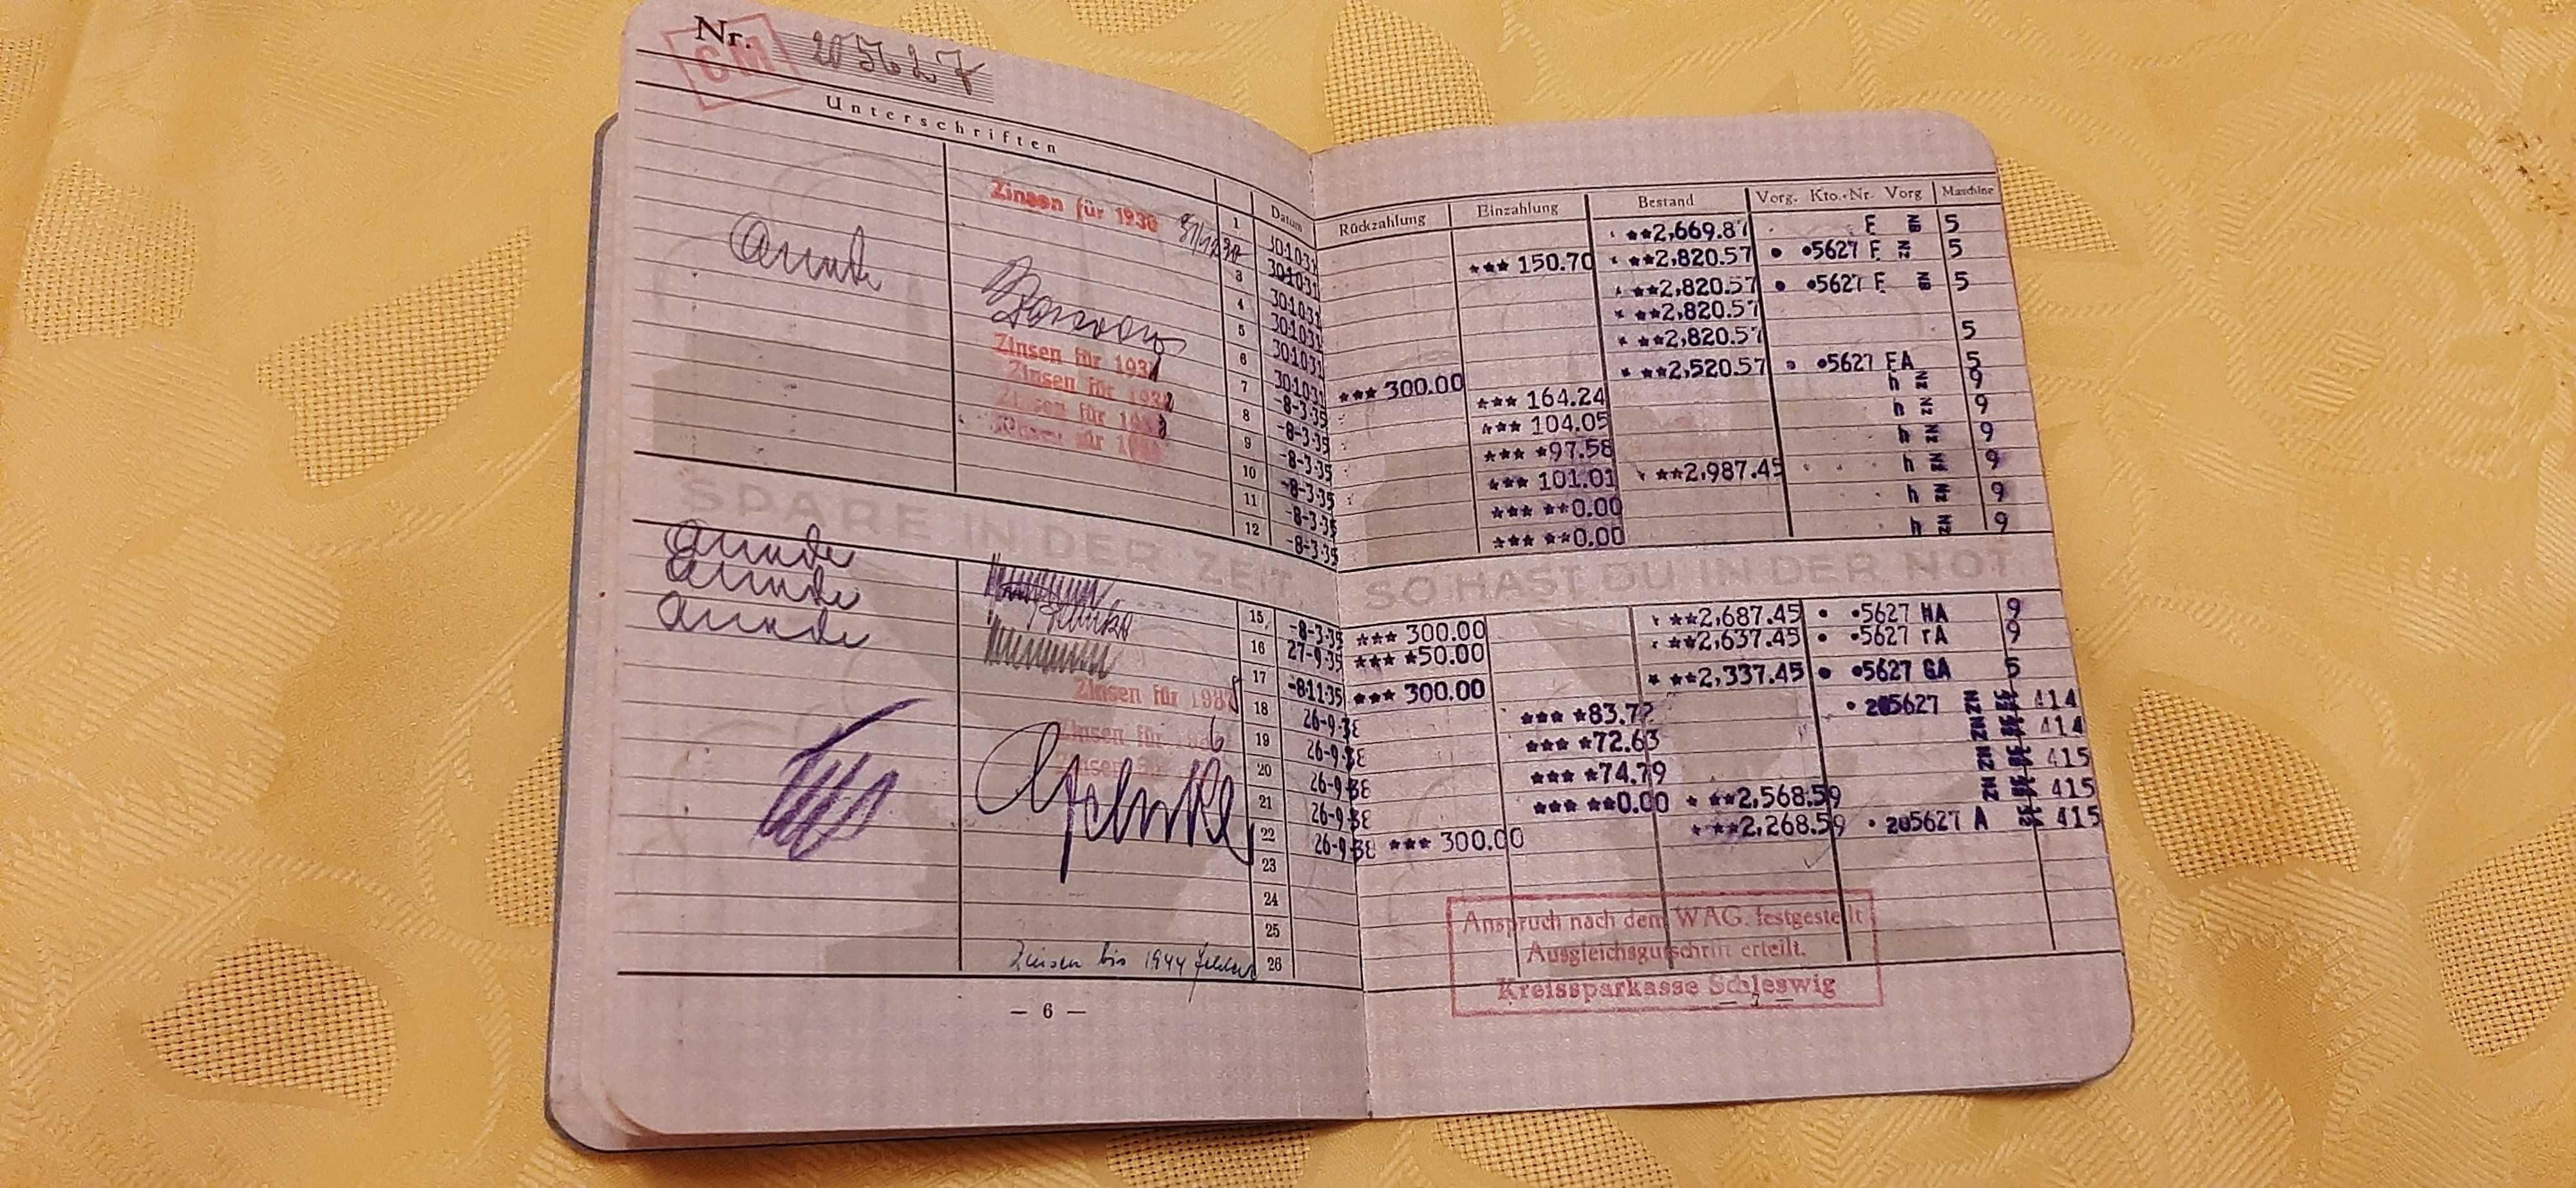 Nr. 205627
GM
Unterschriften
Datum Rückzahlung Einzahlung Bestand Vorg. Kto.-Nr. Vorg Maschine
Zinsen für 1930 1 30.10.31 **2,669.87 F 5
30.10.31 *** 150.70 **2,820.57 •5627 F 5
3 30.10.31 **2,820.57 •5627 F 5
4 30.10.31 **2,820.57
5 30.10.31 **2,820.57 5
Zinsen für 1931 6 30.10.31 *** 300.00 **2,520.57 •5627 FA 5
Zinsen für 1932 7 -8-3.35 *** 164.24 h 9
Zinsen für 1933 8 -8-3.35 *** 104.05 h 9
Zinsen für 9 -8-3.35 *** *97.58 h 9
10 -8-3.35 *** 101.01 **2,987.45 h 9
11 -8-3.35 *** **0.00 h 9
12 -8-3.35 *** **0.00 h 9
SPARE IN DER ZEIT SO HAST DU IN DER NOT
15 -8-3.35 *** 300.00 **2,687.45 •5627 HA 9
16 27-9.35 *** *50.00 **2,637.45 •5627 rA 9
17 -8.11.35 *** 300.00 **2,337.45 •5627 GA 5
Zinsen für 18 26-9.38 *** *83.72 205627 NZ 414
Zinsen für 19 26-9.38 *** *72.63 NZ 414
Zinsen für 20 26-9.38 *** *74.79 NZ 415
21 26-9.38 *** **0.00 **2,568.59 NZ 415
22 26-9.38 *** 300.00 **2,268.59 205627 A 415
23
24
25
Zinsen bis 1944 fehlen 26
Anspruch nach dem WAG. festgestellt
Ausgleichsgutschrift erteilt.
Kreissparkasse Schleswig
— 6 — — 7 —